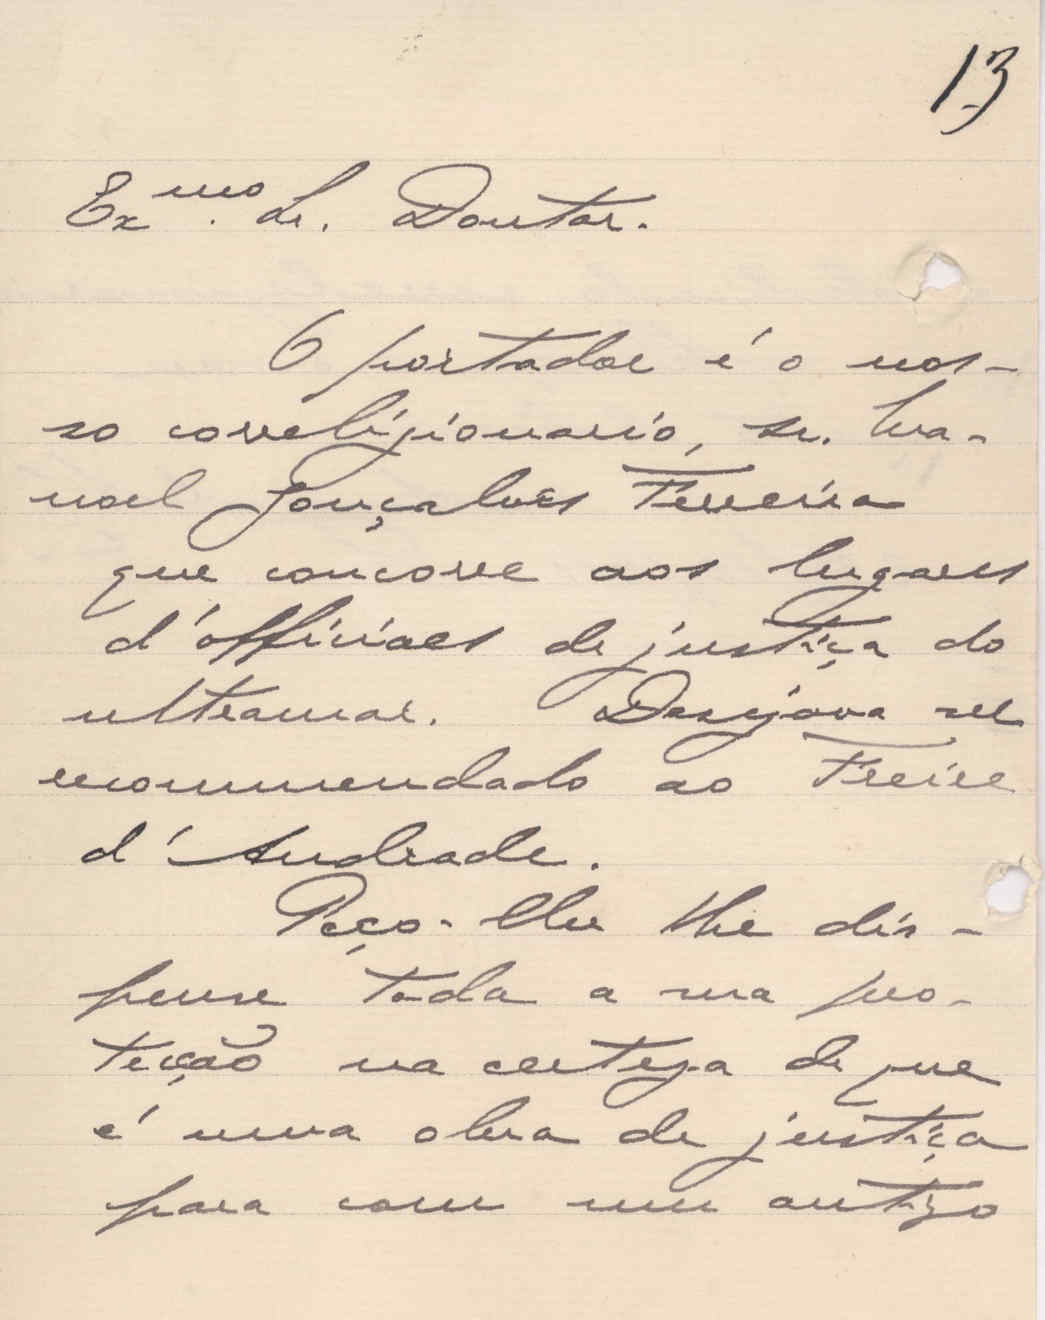 13
Ex.mo Sr. Doutor.
O portador é o nos-
so correligionario, sr. Ma-
noel Gonçalves Ferreira
que concorre aos lugares
d'officiaes de justiça do
ultramar. Desejava ser
recommendado ao Freire
d'Andrade.
Peço-lhe lhe dis-
pense toda a sua pro-
tecção na certeza de que
é uma obra de justiça
para com um antigo